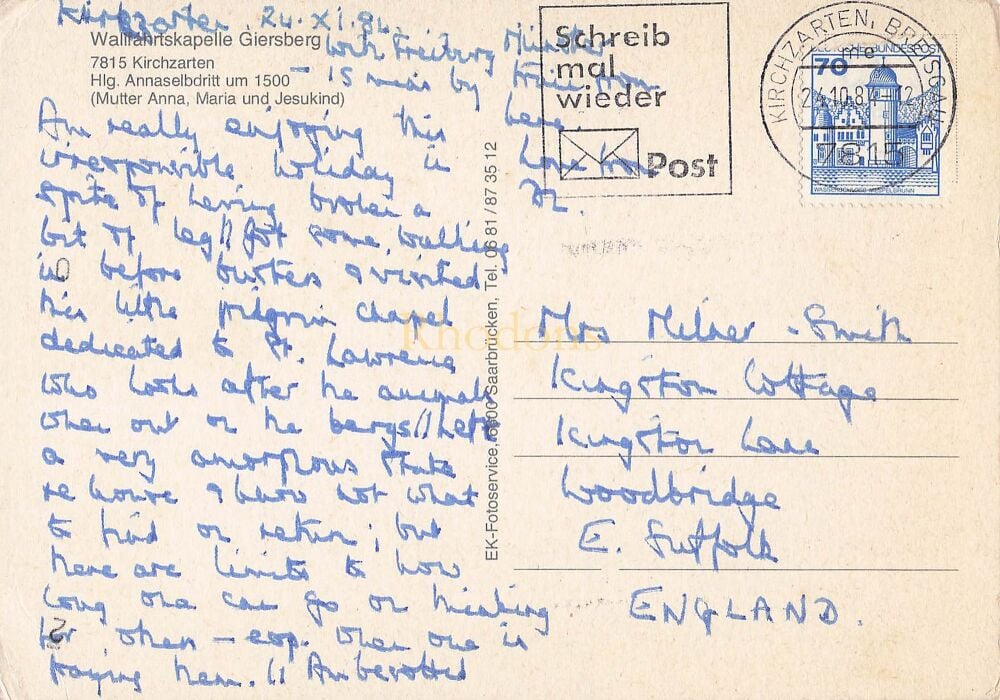 Kirchzarten. 24.XI.84.
Wallfahrtskapelle Giersberg
7815 Kirchzarten
Hlg. Annaselbdritt um 1500
(Mutter Anna, Maria und Jesukind)
with Freiburg Minster
– 15 mins by train from
here.
Am really enjoying this
irresponsible holiday in
spite of having broken a
bit of leg // Got some walking
in before busters & visited
this little pilgrim chapel
dedicated to St. Lawrence
who looks after the animals
when out on the bergs // Left
a very amorphous state
re house & know not what
to find on return; but
there are limits to how
long one can go on thinking
for others – esp. when one is
paying them. //
Schreib
mal
wieder
Post
KIRCHZARTEN, BREISGAU
24.10.84-12
7815
DEUTSCHE BUNDESPOST
70
WASSERSCHLOSS MESPELBRUNN
EK-Fotoservice, 6600 Saarbrücken, Tel. 06 81 / 87 35 12
Rhodons
Mrs Milner-Smith
Kingston Cottage
Kingston Lane
Woodbridge
E. Suffolk
ENGLAND.